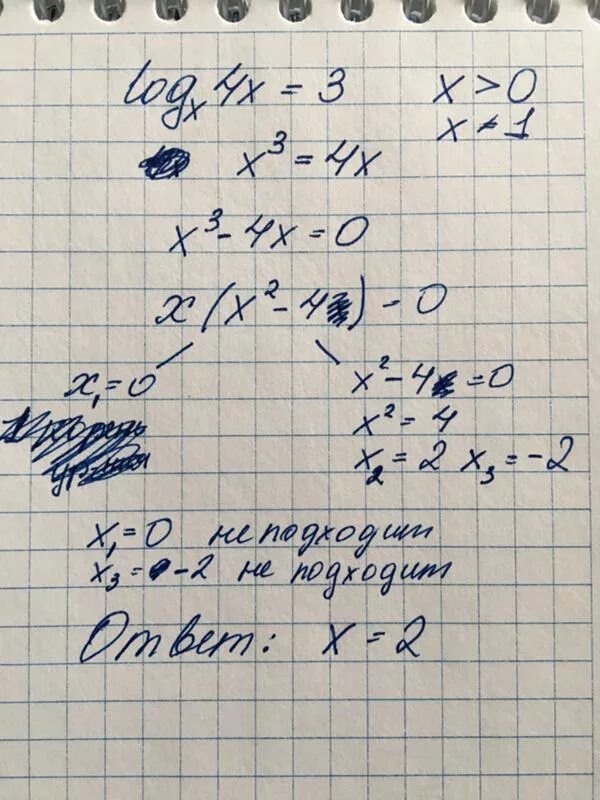 logₓ 4x = 3 x > 0
x ≠ 1
x³ = 4x
x³ - 4x = 0
x (x² - 4) = 0
x₁ = 0 x² - 4 = 0
x² = 4
x₂ = 2 x₃ = -2
x₁ = 0 не подходит
x₃ = -2 не подходит
Ответ: x = 2